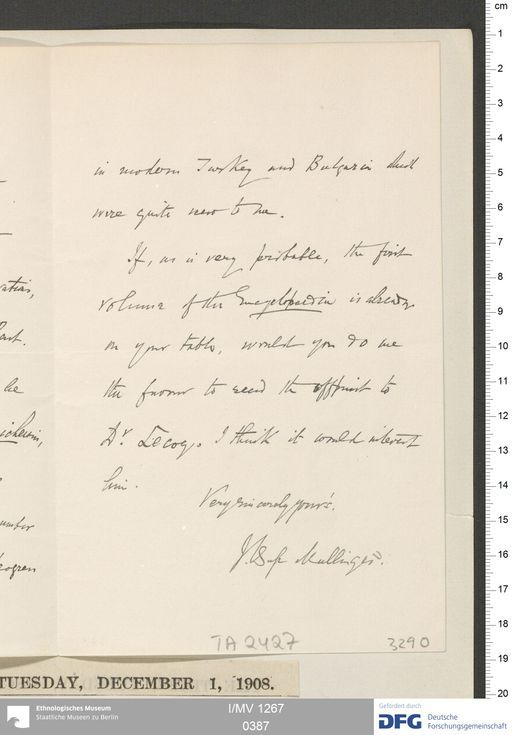 in modern Turkey and Bulgaria that
were quite new to me.
If, as is very probable, the first
volume of the Encyclopaedia is already
on your table, would you do me
the favour to send the offprint to
Dr. Lecoq. I think it would interest
him.
Very sincerely yours.
J. Bass Mullinger.
TA 2427
3290
TUESDAY, DECEMBER 1, 1908.
Ethnologisches Museum
Staatliche Museen zu Berlin
I/MV 1267
0387
Gefördert durch
DFG Deutsche
Forschungsgemeinschaft
cm
1
2
3
4
5
6
7
8
9
10
11
12
13
14
15
16
17
18
19
20